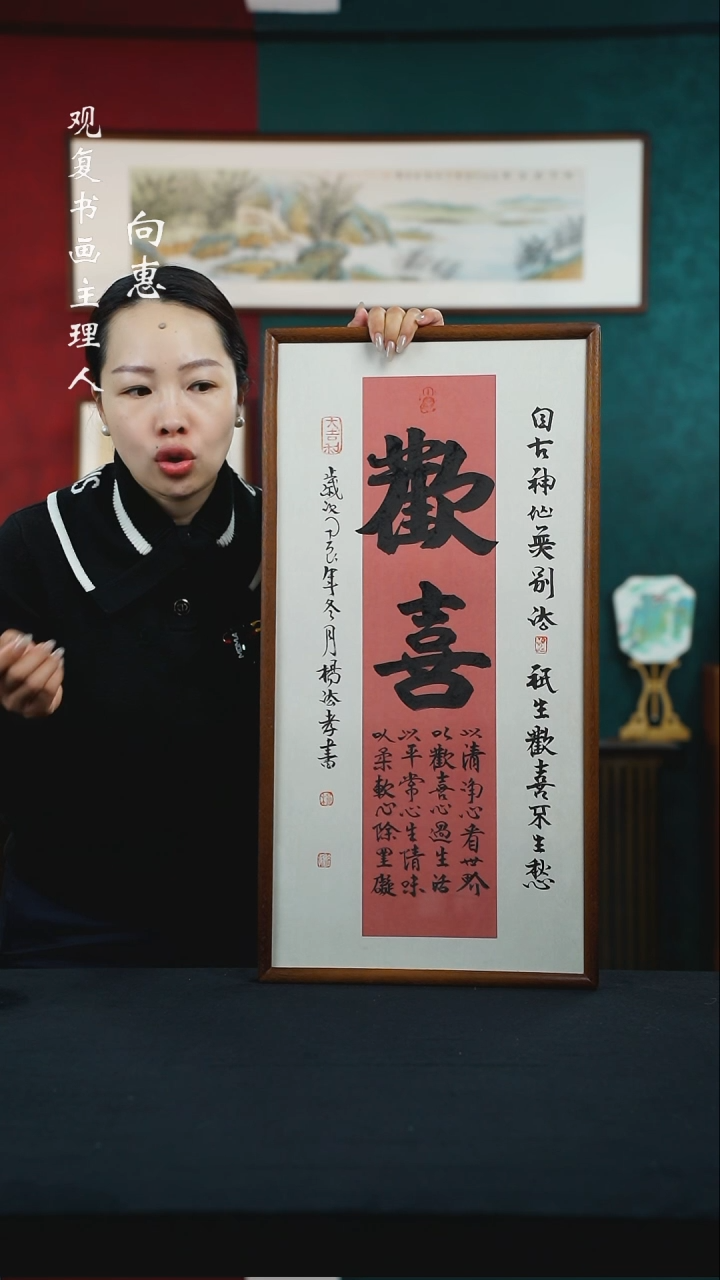 观复书画主理人
向惠
自古神仙無别法 祇生歡喜不生愁
歡喜
以清净心看世界
以歡喜心過生活
以平常心生情味
以柔軟心除罣礙
大吉祥
歲次甲辰年冬月楊法孝書